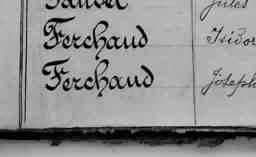 Jules
Ferchaud Isidor
Ferchaud Joseph